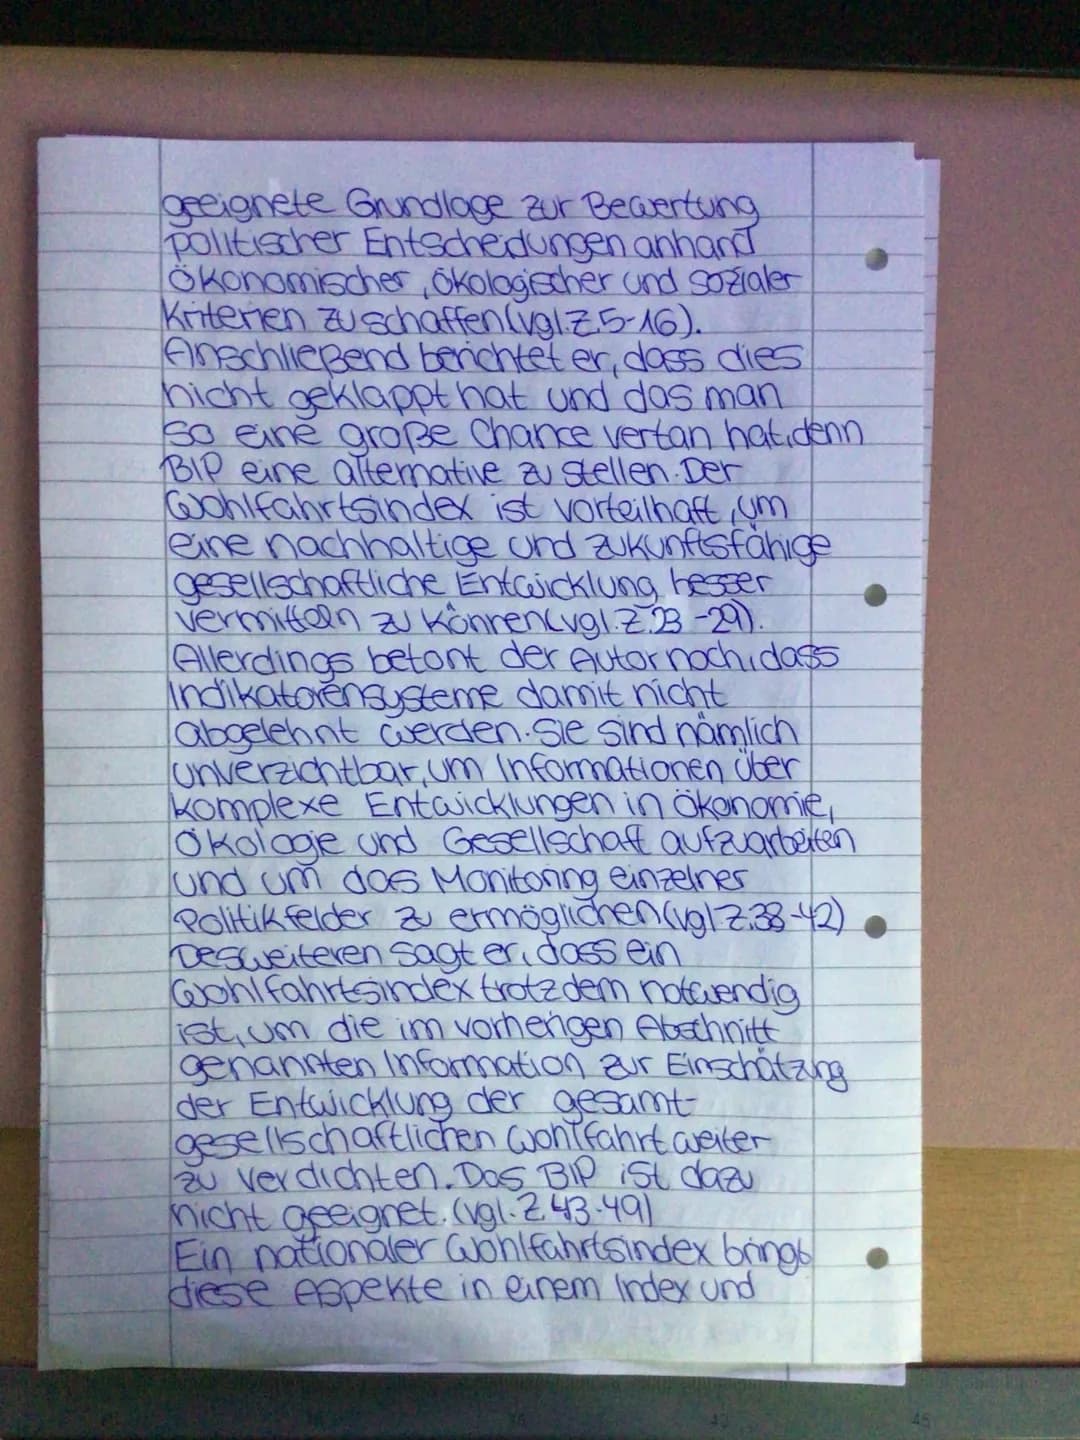 geeignete Grundlage zur Bewertung
politischer Entscheidungen anhand
Ökonomischer, ökologischer und sozialer
Kriterien zu schaffen (vgl. Z. 5-16).
Anschließend berichtet er, dass dies
nicht geklappt hat und das man
so eine große Chance vertan hat, denn
BIP eine alternative zu stellen. Der
Wohlfahrtsindex ist vorteilhaft, um
eine nachhaltige und zukunftsfähige
gesellschaftliche Entwicklung besser
vermitteln zu können (vgl. Z. 23-29).
Allerdings betont der Autor noch, dass
Indikatorensysteme damit nicht
abgelehnt werden. Sie sind nämlich
unverzichtbar, um Informationen über
komplexe Entwicklungen in Ökonomie,
Ökologie und Gesellschaft aufzuarbeiten
und um das Monitoring einzelner
Politikfelder zu ermöglichen (vgl Z. 38-42)
Desweiteren sagt er, dass ein
Wohlfahrtsindex trotzdem notwendig
ist, um die im vorherigen Abschnitt
genannten Information zur Einschätzung
der Entwicklung der gesamt-
gesellschaftlichen Wohlfahrt weiter
zu verdichten. Das BIP ist dazu
nicht geeignet. (vgl. Z. 43-49)
Ein nationaler Wohlfahrtsindex bringt
diese Aspekte in einem Index und